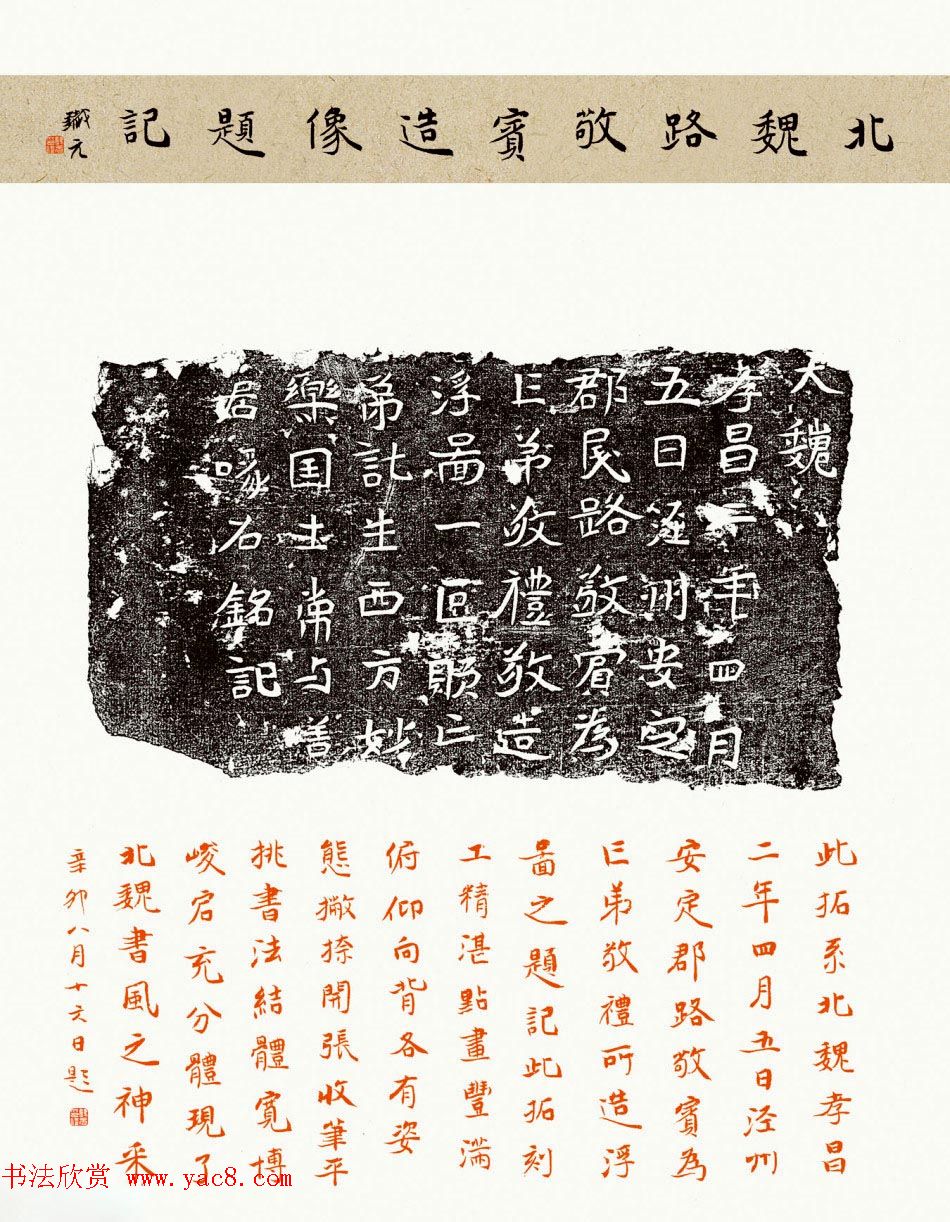 北魏路敬賓造像題記
大魏
孝昌二年四月
五日涇州安定
郡民路敬賓為
亡弟敬禮敬造
浮啚一區願亡
弟託生西方妙
樂国土常与善
居喙石銘記
此拓系北魏孝昌
二年四月五日泾州
安定郡路敬賓為
亡弟敬禮所造浮
啚之題記此拓刻
工精湛點畫豐滿
俯仰向背各有姿
態撇捺開張收筆平
挑書法結體寬博
峻宕充分體現了
北魏書風之神采
辛卯八月十六日題
书法欣赏 www.yac8.com